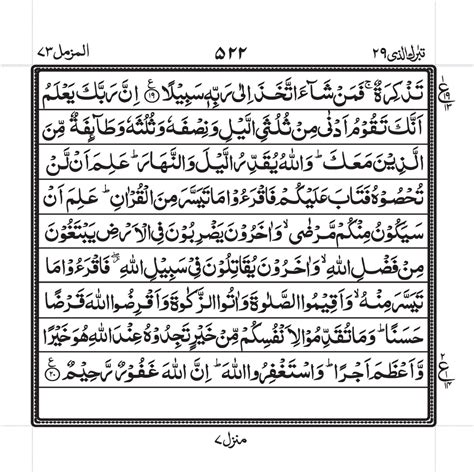 المزمل ٧٣ ٥٢٢ تبرك الذی ٢٩
تَذْكِرَةٌ ۚ فَمَنْ شَآءَ اتَّخَذَ اِلٰى رَبِّهٖ سَبِیْلًا ﴿۱۹﴾ اِنَّ رَبَّكَ یَعْلَمُ
اَنَّكَ تَقُوْمُ اَدْنٰى مِنْ ثُلُثَیِ الَّیْلِ وَنِصْفَهٗ وَثُلُثَهٗ وَطَآىِٕفَةٌ مِّنَ
الَّذِیْنَ مَعَكَ ؕ وَاللّٰهُ یُقَدِّرُ الَّیْلَ وَالنَّهَارَ ؕ عَلِمَ اَنْ لَّنْ
تُحْصُوْهُ فَتَابَ عَلَیْكُمْ فَاقْرَءُوْا مَا تَیَسَّرَ مِنَ الْقُرْاٰنِ ؕ عَلِمَ اَنْ
سَیَكُوْنُ مِنْكُمْ مَّرْضٰى ۙ وَاٰخَرُوْنَ یَضْرِبُوْنَ فِی الْاَرْضِ یَبْتَغُوْنَ
مِنْ فَضْلِ اللّٰهِ ۙ وَاٰخَرُوْنَ یُقَاتِلُوْنَ فِیْ سَبِیْلِ اللّٰهِ ۖ فَاقْرَءُوْا مَا
تَیَسَّرَ مِنْهُ ۙ وَاَقِیْمُوا الصَّلٰوةَ وَاٰتُوا الزَّكٰوةَ وَاَقْرِضُوا اللّٰهَ قَرْضًا
حَسَنًا ؕ وَمَا تُقَدِّمُوْا لِاَنْفُسِكُمْ مِّنْ خَیْرٍ تَجِدُوْهُ عِنْدَ اللّٰهِ هُوَ خَیْرًا
وَّاَعْظَمَ اَجْرًا ؕ وَاسْتَغْفِرُوا اللّٰهَ ؕ اِنَّ اللّٰهَ غَفُوْرٌ رَّحِیْمٌ ﴿۲۰﴾
منزل ٧